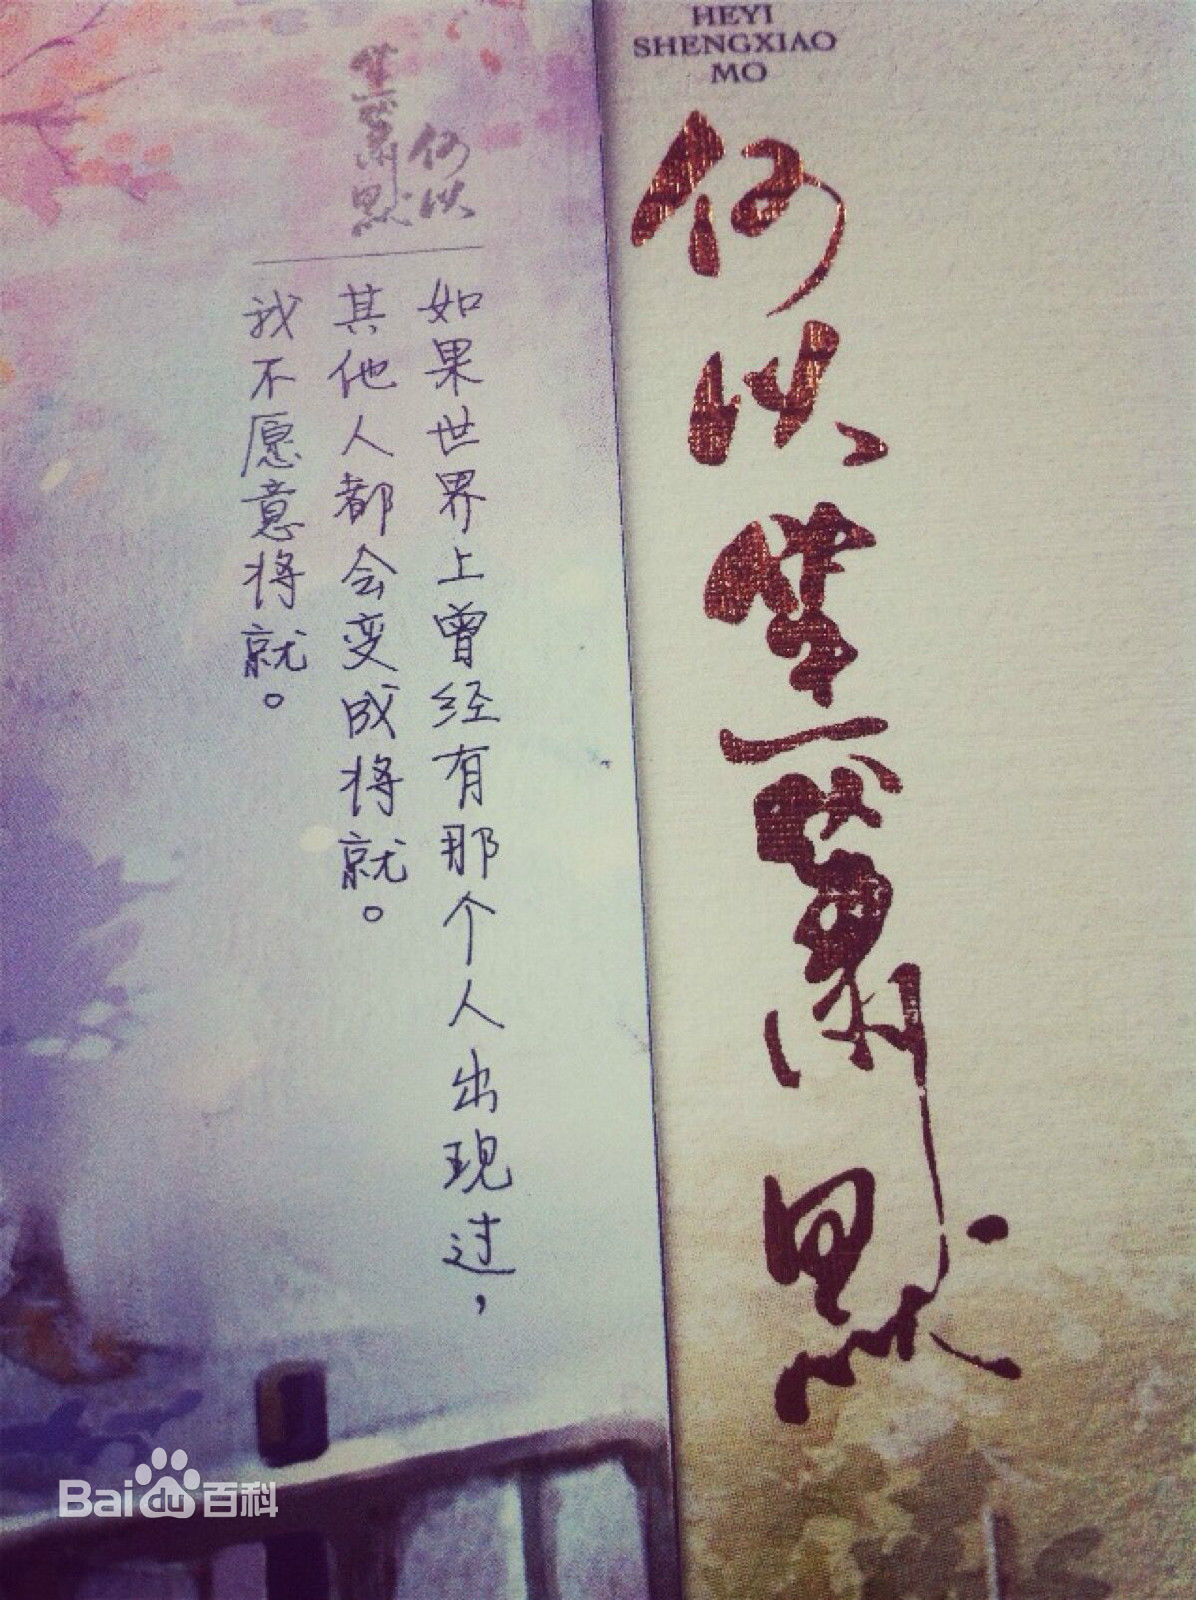 何以
笙萧默
如果世界上曾经有那个人出现过，
其他人都会变成将就。
我不愿意将就。
HEYI
SHENGXIAO
MO
何以笙萧默
Baidu百科